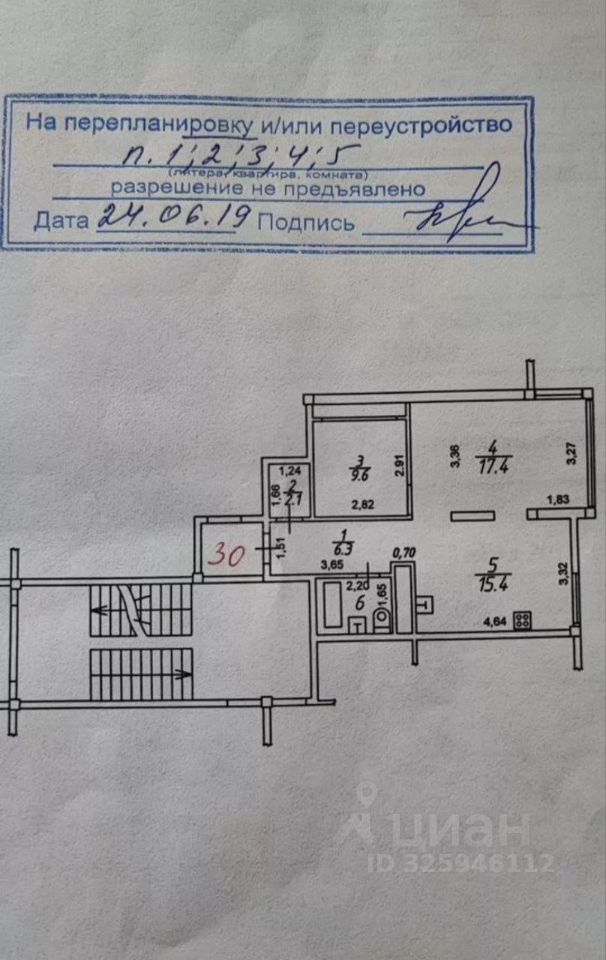 На перепланировку и/или переустройство
п. 1; 2; 3; 4; 5
(литера, квартира, комната)
разрешение не предъявлено
Дата 24.06.19 Подпись
4
17.4
3,36
3,27
1,83
3
9.6
2,91
2,82
1,24
2
2.1
1,66
30
1,51
1
6.3
3,65
0,70
5
15.4
3,32
4,64
2,20
6
1,65
циан
ID 325946112